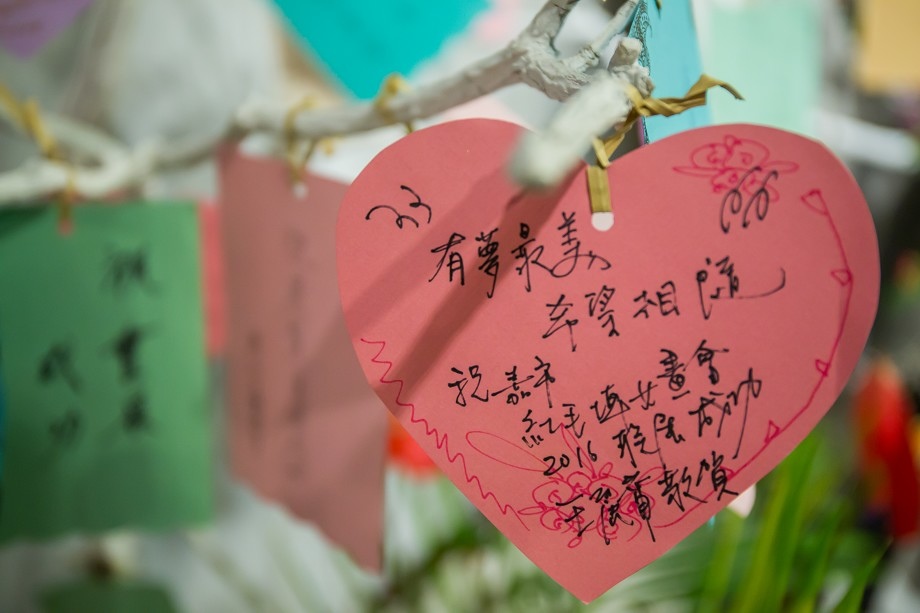 有夢最美
希望相隨
祝嘉市
紅毛埤女畫會
2016 聯展成功
敬賀
祝畫展
成功